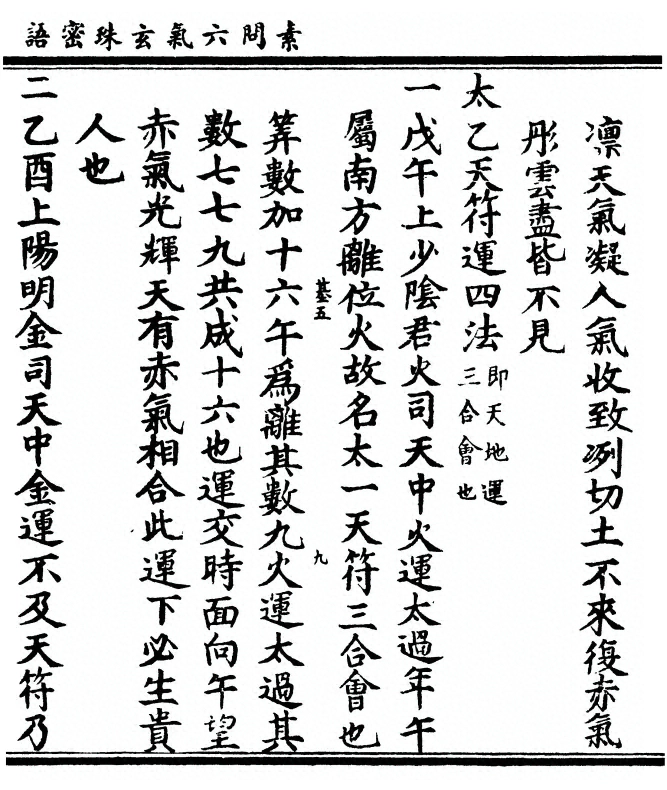 素問六氣玄珠密語
凛天氣凝人氣收致冽切土不來復赤氣
彤雲盡皆不見
太乙天符運四法即天地運三合會也
一戊午上少陰君火司天中火運太過年午
屬南方離位火故名太一天符三合會也
五 九
筭數加十六午爲離其數九火運太過其
數七七九共成十六也運交時面向午望
赤氣光輝天有赤氣相合此運下必生貴
人也
二乙酉上陽明金司天中金運不及天符乃